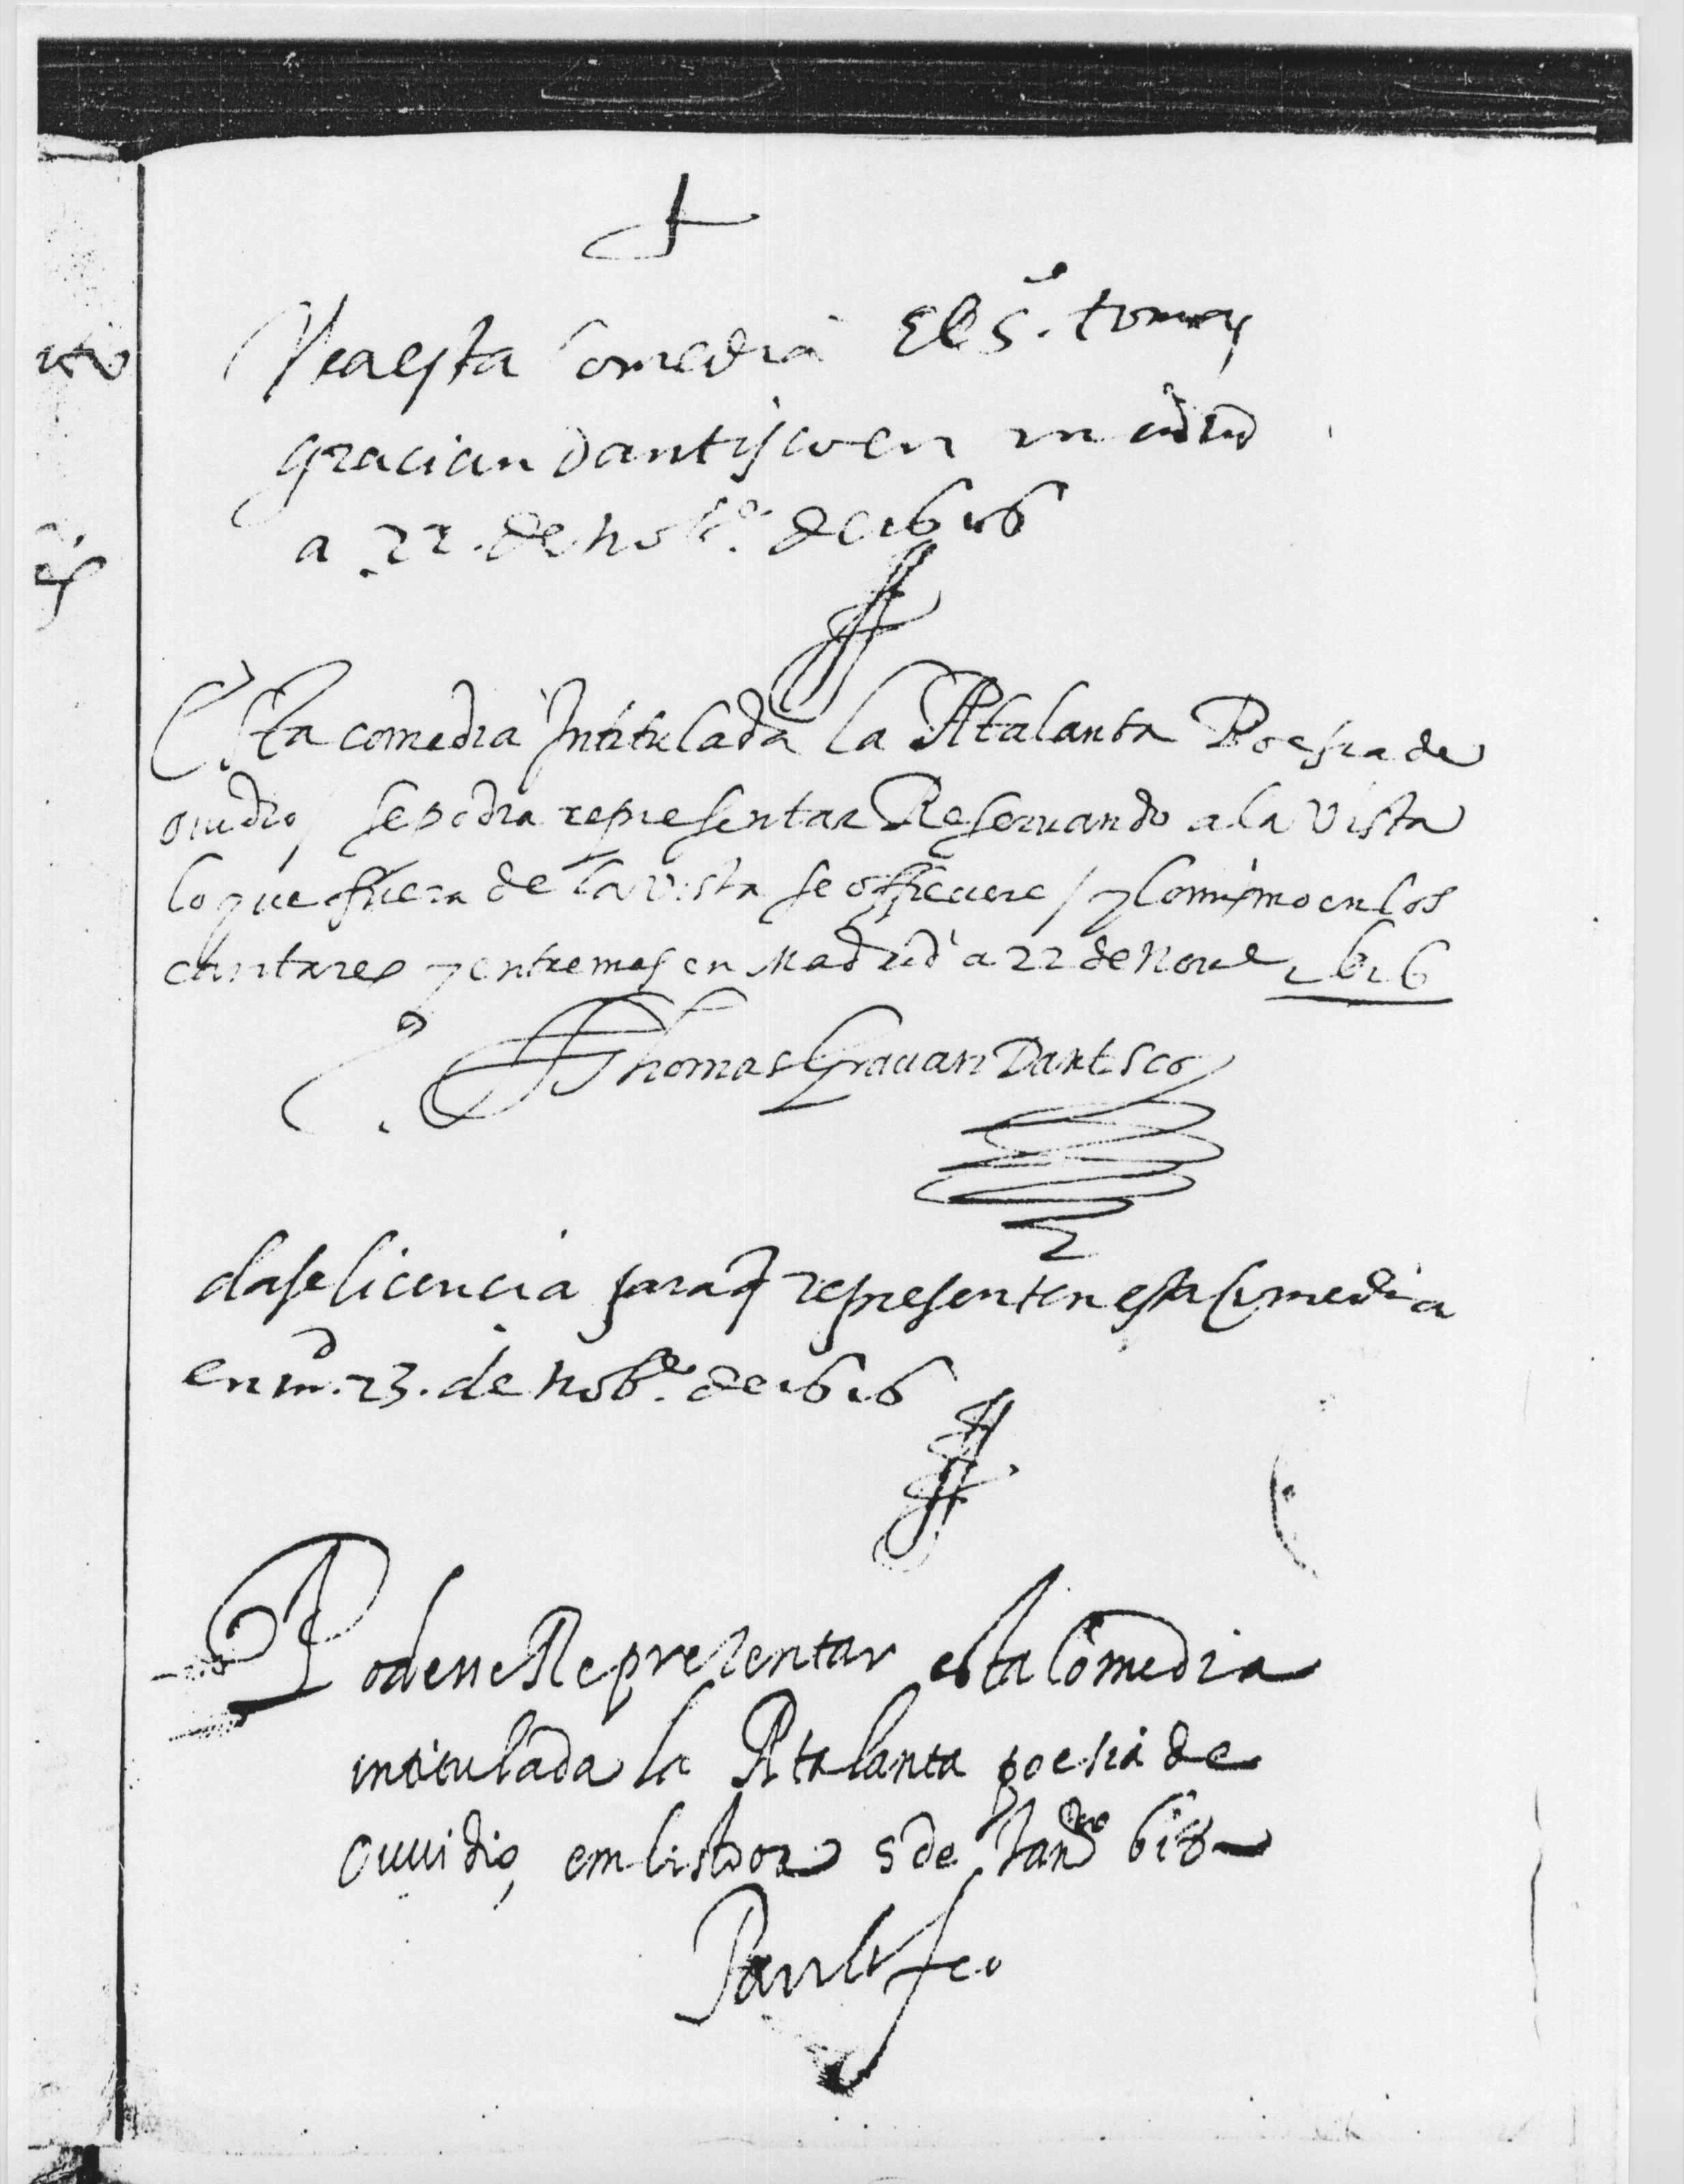 Vea esta Comedia El S.r tomas
gracian dantisco en madrid
a 22 de nob.e de 1616
Esta comedia Intitulada la Atalanta Poesia de
ouidio, se podra representar Reseruando a la vista
lo que fuera de la vista se offreciere / y lo mismo en los
cantares y entremes en Madrid a 22 de Noue 1616
Thomas Gracian Dantisco
dase licencia para q representen esta Comedia
en m.d 23. de nob.e de 1616
Podesse Reprezentar esta Comedia
intitulada la Atalanta poesia de
Ouuidio, em lisboa 5 de Jan.ro 618